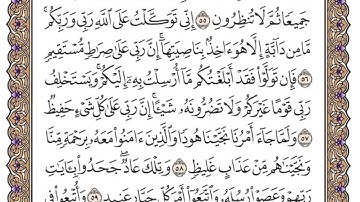 جَمِيعًا ثُمَّ لَا تُنظِرُونِ ٥٥ إِنِّي تَوَكَّلْتُ عَلَى ٱللَّهِ رَبِّي وَرَبِّكُم ۚ
مَّا مِن دَآبَّةٍ إِلَّا هُوَ ءَاخِذٌۢ بِنَاصِيَتِهَآ ۚ إِنَّ رَبِّي عَلَىٰ صِرَٰطٍ مُّسْتَقِيمٍ
٥٦ فَإِن تَوَلَّوْا۟ فَقَدْ أَبْلَغْتُكُم مَّآ أُرْسِلْتُ بِهِۦٓ إِلَيْكُمْ ۚ وَيَسْتَخْلِفُ
رَبِّي قَوْمًا غَيْرَكُمْ وَلَا تَضُرُّونَهُۥ شَيْـًٔا ۚ إِنَّ رَبِّي عَلَىٰ كُلِّ شَيْءٍ حَفِيظٌ
٥٧ وَلَمَّا جَآءَ أَمْرُنَا نَجَّيْنَا هُودًا وَٱلَّذِينَ ءَامَنُوا۟ مَعَهُۥ بِرَحْمَةٍ مِّنَّا
وَنَجَّيْنَٰهُم مِّنْ عَذَابٍ غَلِيظٍ ٥٨ وَتِلْكَ عَادٌ ۖ جَحَدُوا۟ بِـَٔايَٰتِ
رَبِّهِمْ وَعَصَوْا۟ رُسُلَهُۥ وَٱتَّبَعُوٓا۟ أَمْرَ كُلِّ جَبَّارٍ عَنِيدٍ ٥٩ وَأُتْبِعُوا۟ فِي